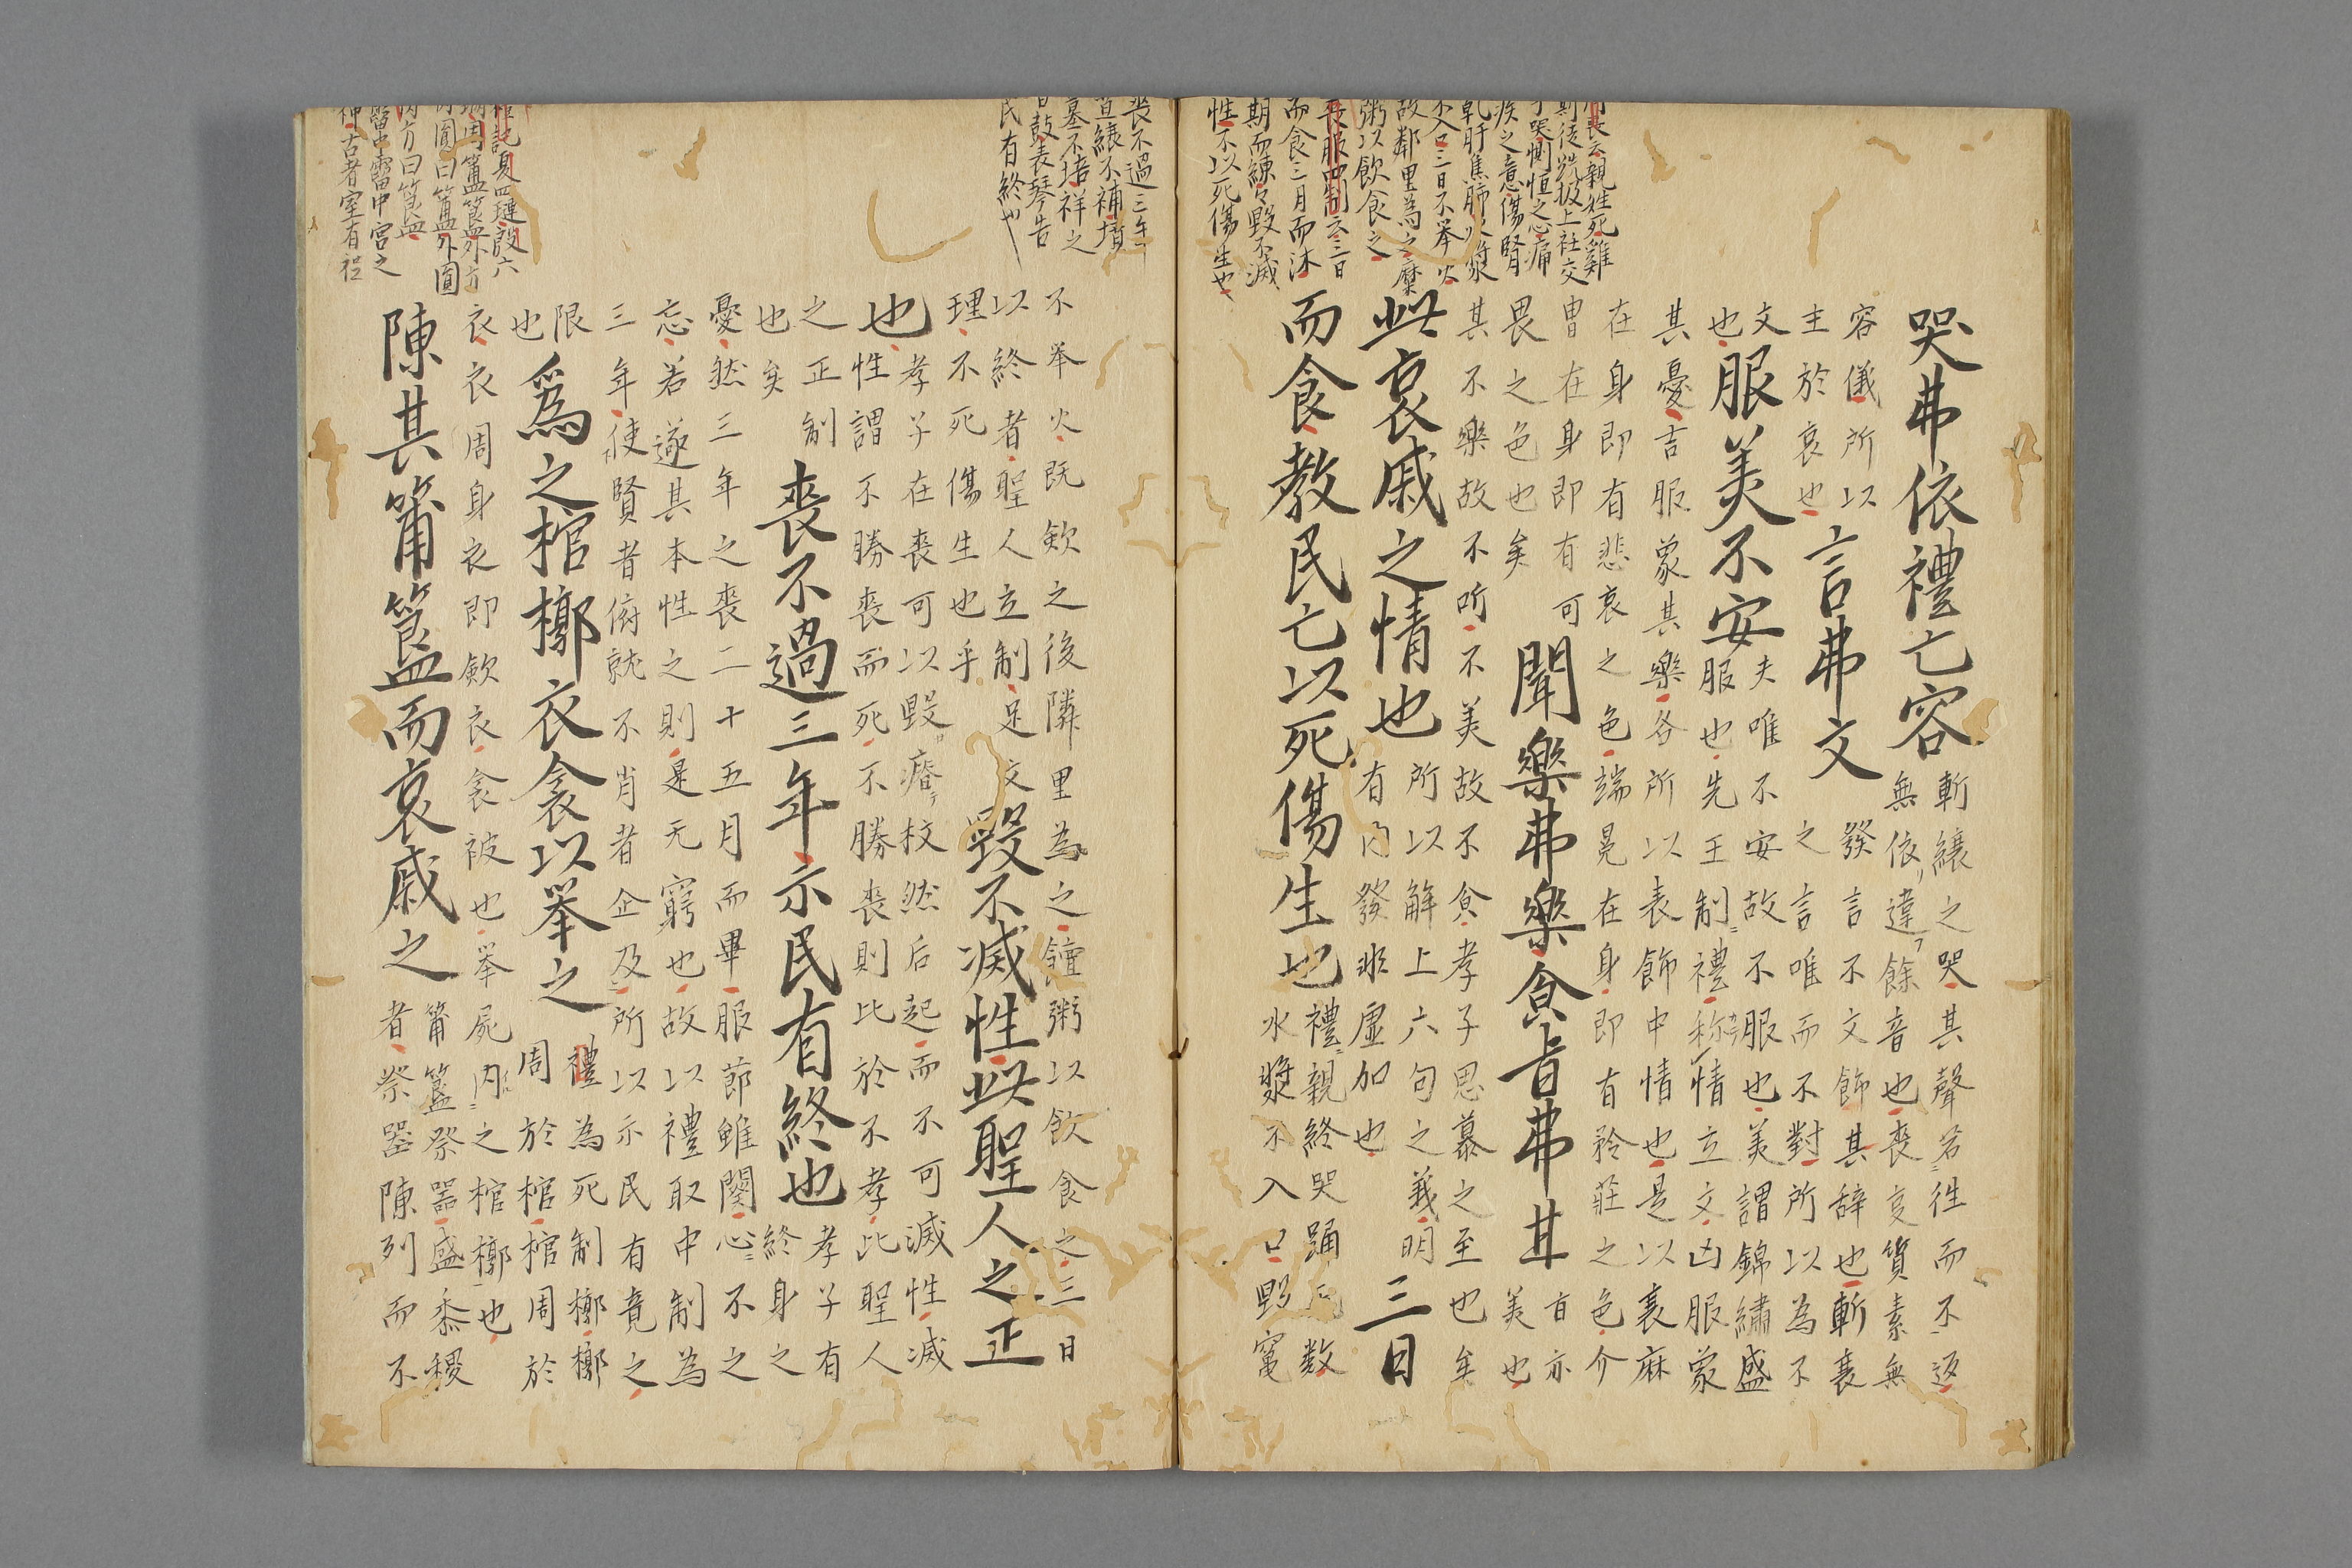 哭弗依禮亡容斬縗之哭其聲若往而不返
無依違餘音也喪㕝質素無
容儀所以
主於哀也言弗文發言不文飾其辞也斬衰
之言唯而不對所以為不
文
也服美不安夫唯不安故不服也美謂錦繡盛
服也先王制禮称情立文凶服蒙
其憂吉服蒙其樂各所以表飾中情也是以衰麻
在身即有悲哀之色端冕在身即有矜莊之色介
冑在身即有可
畏之色也矣聞樂弗樂食旨弗甘旨亦
美也
其不樂故不听不美故不食孝子思慕之至也矣
此哀戚之情也所以解上六句之義明
有内發非虛加也三日
而食教民亡以死傷生也禮親終哭踊无数
水漿不入口毀竃
不举火既斂之後隣里為之饘粥以飲食之三日
以終者聖人立制足文
理不死傷生也乎毀不滅性此聖人之正
也孝子在喪可以毀瘠杖然后起而不可滅性滅
性謂不勝喪而死不勝喪則比於不孝比聖人
之正制
也矣喪不過三年示民有終也孝子有
終身之
憂然三年之喪二十五月而畢服莭雖闋心不之
忘若遂其本性之則是无窮也故以禮取中制為
三年使賢者俯就不肖者企及所以示民有竟之
限
也爲之棺槨衣衾以举之禮為死制槨槨
周於棺棺周於
衣衣周身衣即斂衣衾被也举屍内之棺槨也
陳其簠簋而哀戚之簠簋祭器盛黍稷
者祭器陳列而不
問喪云親始死雞
斯徒跣扱上衽交
手哭惻怛之心痛
疾之意傷腎
乾肝焦肺水漿
不入口三日不举火
故鄰里為之糜
粥以飲食之
喪服四制云三日
而食三月而沐
期而練毀不滅
性不以死傷生也
喪不過三年
苴縗不補墳
墓不培祥之
日鼓素琴告
民有終也
禮記夏四璉殷六
瑚周簠簋外方
内圓曰簠外圓
内方曰簋
霤中霤中宮之
神古者室有